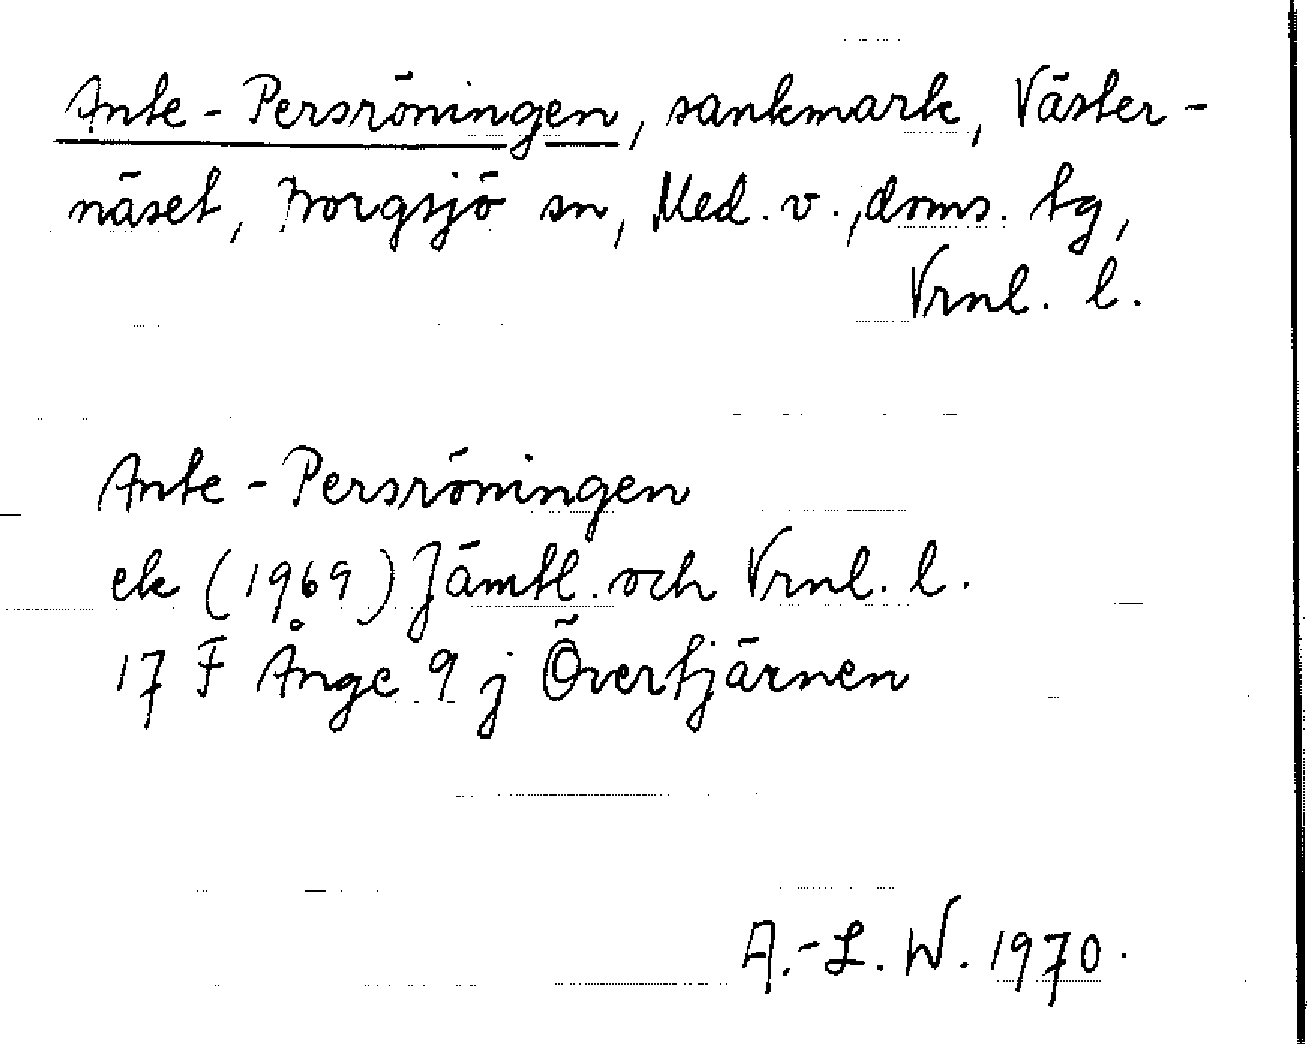 Ante-Persröningen, sankmark, Väster-
näset, Borgsjö sn, Med. v., doms. tg,
Vrnl. l.
Ante-Persröningen
ek (1969) Jämtl. och Vrnl. l.
17 F Ånge 9 j Övertjärnen
A.-L. W. 1970.